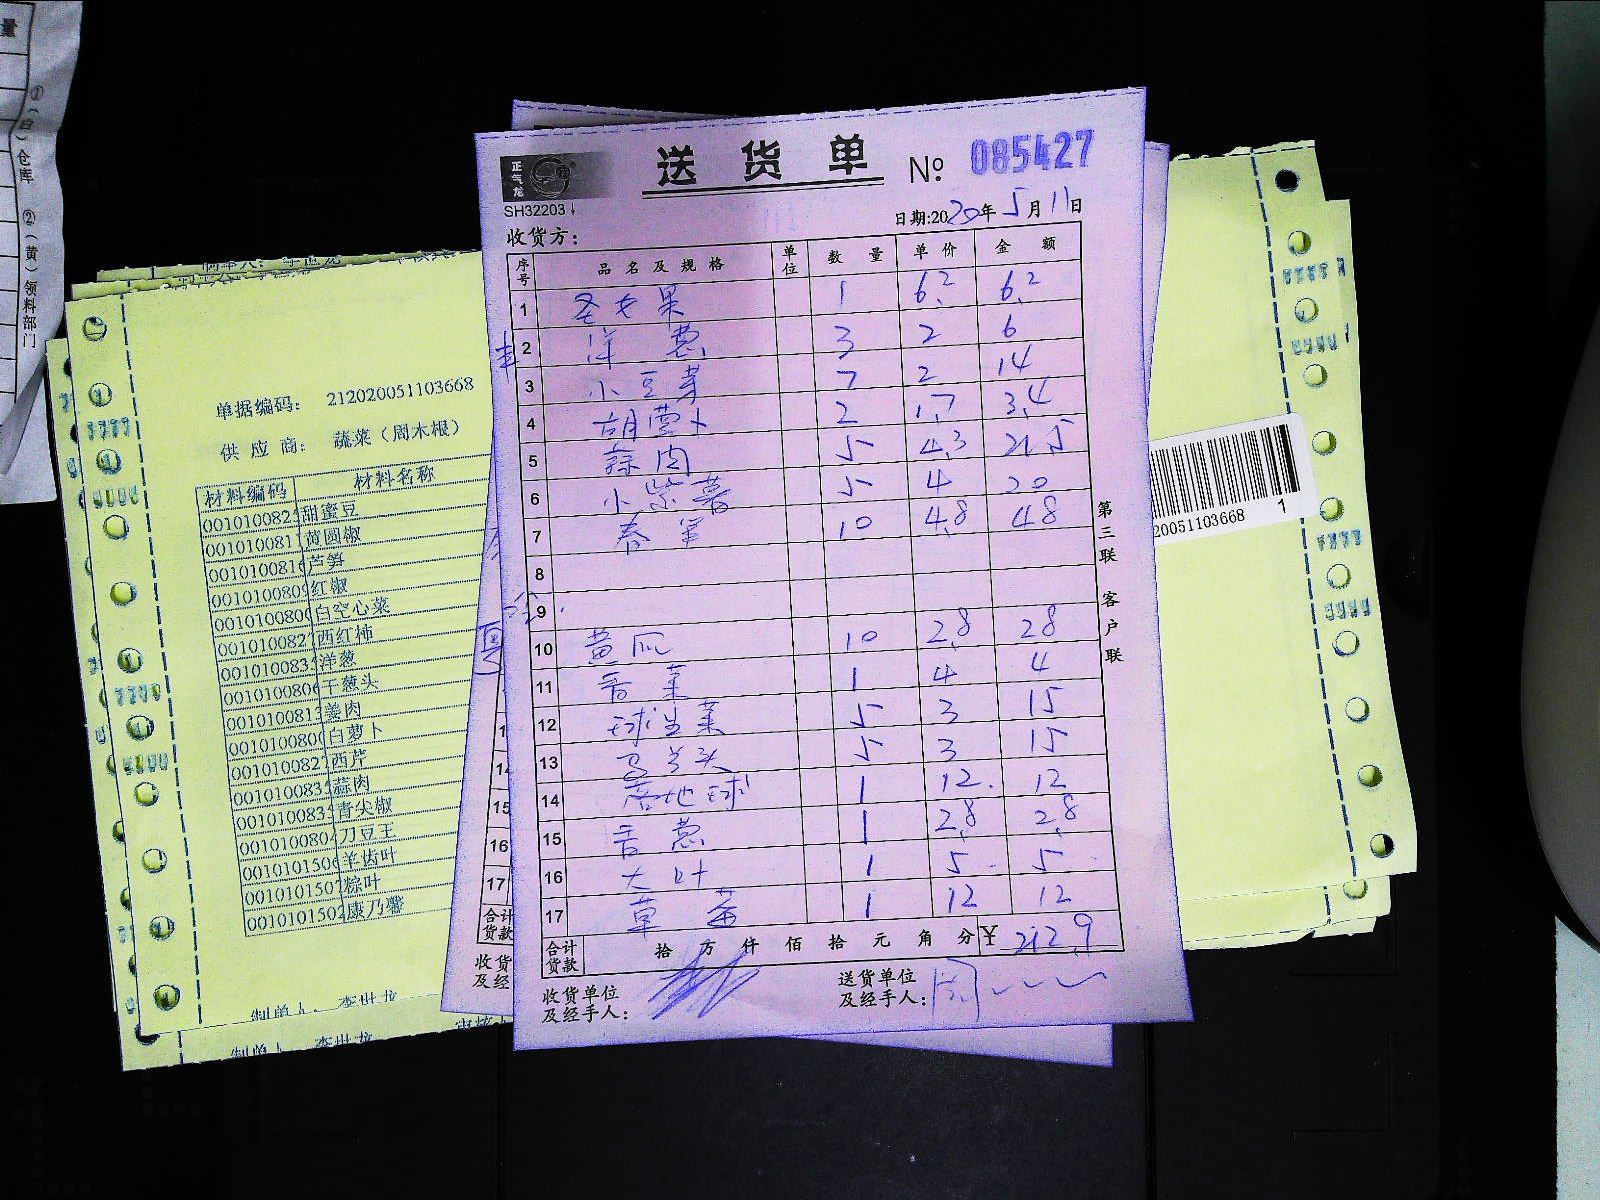 量
①(白)仓库 ②(黄)领料部门
单据编码: 212020051103668
供 应 商: 蔬菜（周木根）
材料编码 材料名称
001010082 甜蜜豆
001010081 荷圆椒
001010081 芦笋
001010080 红椒
001010080 白空心菜
001010082 西红柿
001010083 洋葱
001010080 干葱头
001010081 姜肉
001010080 白萝卜
001010082 西芹
001010083 蒜肉
001010083 青尖椒
001010080 刀豆王
001010150 羊齿叶
001010150 粽叶
001010150 康乃馨
正气龙
送 货 单 № 085427
SH32203
日期:2020年5月11日
收货方:
序号 品 名 及 规 格 单位 数 量 单 价 金 额
1 圣女果 1 6.2 6.2
2 洋葱 3 2 6
3 小豆芽 7 2 14
4 胡萝卜 2 1.7 3.4
5 蒜肉 5 4.3 21.5
6 小紫薯 5 4 20
7 春笋 10 4.8 48
8
9
10 黄瓜 10 2.8 28
11 香菜 1 4 4
12 球生菜 5 3 15
13 3 15 5
14 1 12 12
15 香葱 1 2.8 2.8
16 大叶 1 5 5
17 草莓 1 12 12
合计货款 拾 万 仟 佰 拾 元 角 分 ¥ 212.9
收货单位及经手人:
送货单位及经手人: 周
第三联 客户联
20051103668 1
15
16
17
合计货款
收货
及经